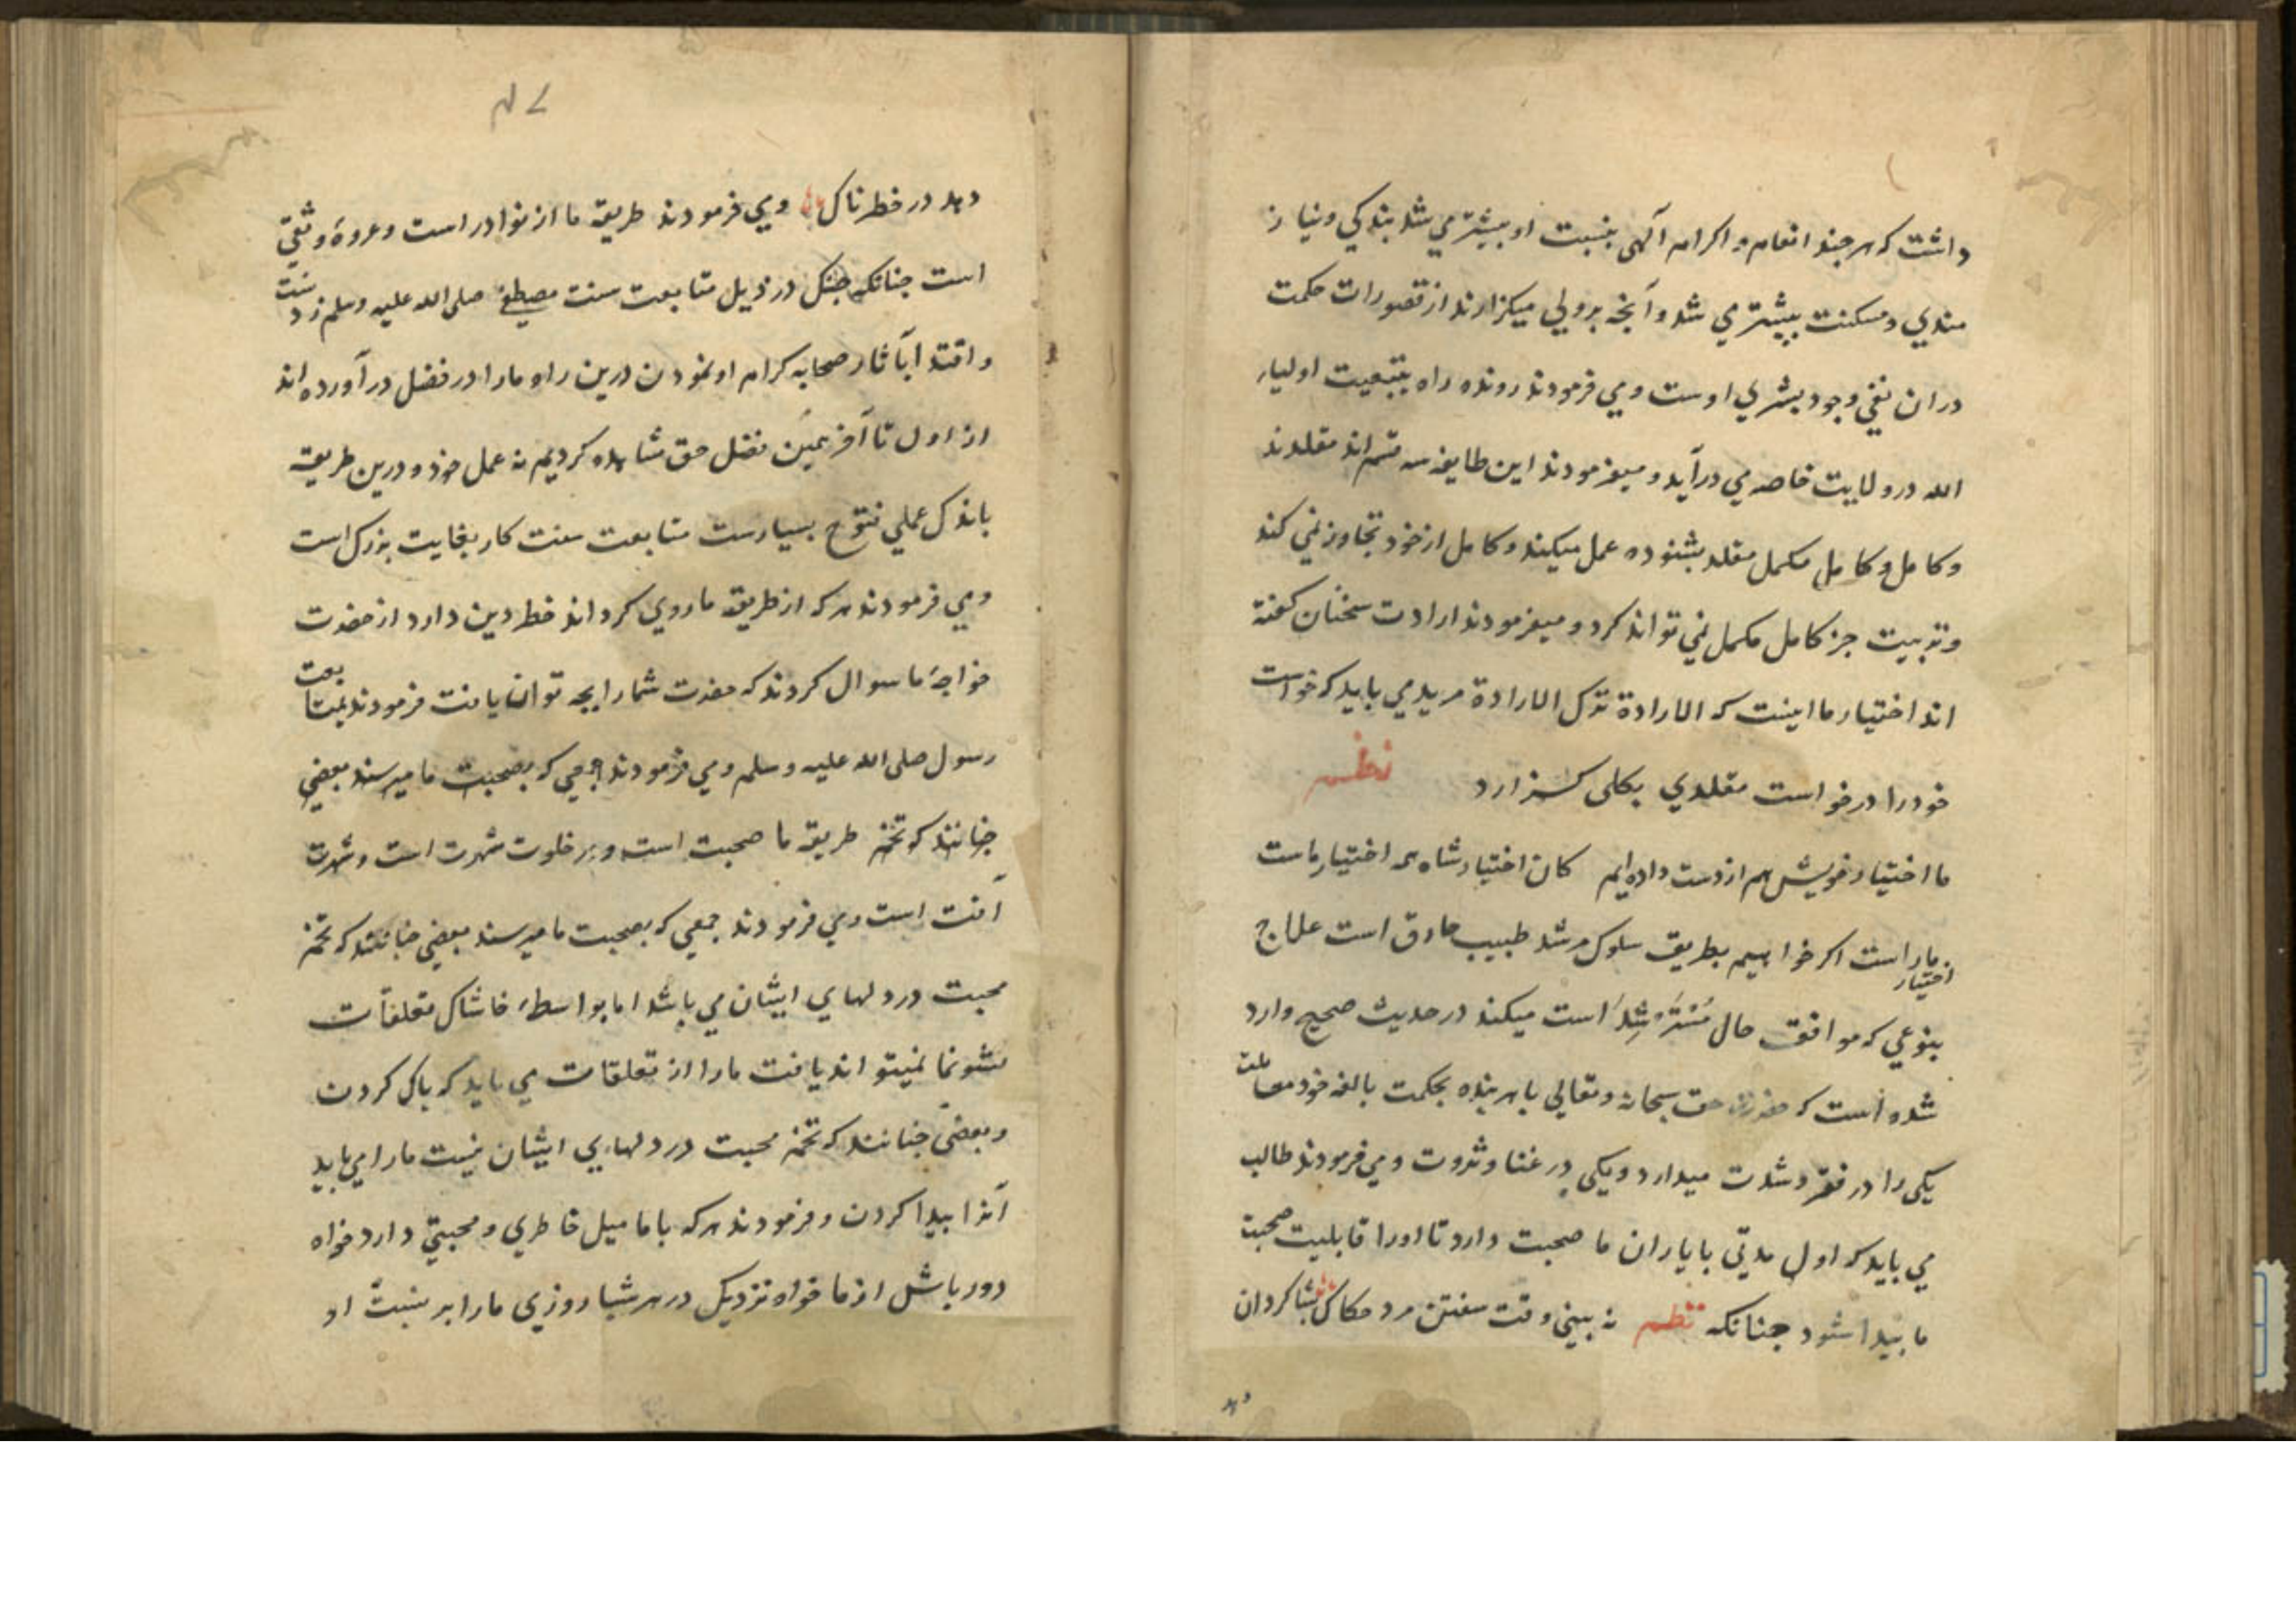 داشت که هر جند انعام و اکرام آلهی بنسبت او بیشتر می شد بندکی و نیاز
مندی و مسکنت بیشتر می شد و آنجه بر ولی میکزارند از قصورات حکمت
در ان نفی وجود بشری اوست و می فرمودند رونده راه بتبعیت اولیاء
الله در ولایت خاصه می درآید و میفرمودند این طایفه سه قسم اند مقلدند
و کامل و کامل مکمل مقلد بشنوده عمل میکند و کامل از خود تجاوز نمی کند
و تربیت جز کامل مکمل نمی تواند کرد و میفرمودند ارادت سخنان کفته
اند اختیار ما اینست که الارادة ترک الارادة مرید می باید که خواست
خود را در خواست مقلدی بکلی کزارد نظم
ما اختیار خویش هم از دست داده ایم کان اختیار شاه همه اختیار ماست
اختیار ما راست اکر خواهیم بطریق سلوک مرشد طبیب حاذق است علاج
بنوعی که موافق حال مسترشد است میکند در حدیث صحیح وارد
شده است که حضرت حق سبحانه و تعالی با هر بنده بحکمت بالغه خود معاملت
یکی را در فقر و شدت میدارد و یکی در غنا و ثروت و می فرمودند طالب
می باید که اول مدتی با یاران ما صحبت دارد تا او را قابلیت صحبت
ما پیدا شود جنانکه نظم نه بینی وقت سفتن مرد حکاک بشاکردان
دهد
۷۴
دهد در خطرناک و می فرمودند طریقه ما از نوادر است و عروهٔ وثقی
است جنانکه جنک در ذیل متابعت سنت مصطفی صلی الله علیه وسلم زدنست
و اقتدا بآثار صحابه کرام او نمودن درین راه ما را در فضل در آورده اند
از اول تا آخر همین فضل حق مشاهده کردیم نه عمل خود و درین طریقه
باندک عملی فتوح بسیارست متابعت سنت کار بغایت بزرک است
و می فرمودند هر که از طریقه ما روی کرداند خطر دین دارد از حضرت
خواجهٔ ما سوال کردند که حضرت شما را بجه توان یافت فرمودند بمتابعت
رسول صلی الله علیه وسلم و می فرمودند جمعی که بصحبت ما میرسند بعضی
جنانند که تخم طریقه ما صحبت است و در خلوت شهرت است و شهرت
آفت است و می فرمودند جمعی که بصحبت ما میرسند بعضی جنانند که تخم
محبت در دلهای ایشان می باشد اما بواسطهٔ خاشاک تعلقات
نشو نما نمیتواند یافت ما را از تعلقات می باید که پاک کردن
و بعضی جنانند که تخم محبت در دلهای ایشان نیست ما را می باید
آنرا پیدا کردن و فرمودند هر که با ما میل خاطری و محبتی دارد خواه
دور باش از ما خواه نزدیک در هر شبا روزی ما را بر نسبت او